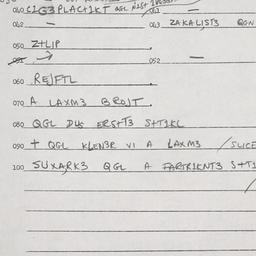 040 C1G3 PLACT1KT QGL
042 — 043 ZAKALIST3 QON
050 Z+LIP
052 —
060 REJFTL
070 A LAXM3 BROJT.
080 QGL DUS ERS+T3 S+T1KL
090 + QGL KLEN3R VI A LAXM3 /SLICE
100 SUXARK3 QGL A FARTR1KNT3 S+T1